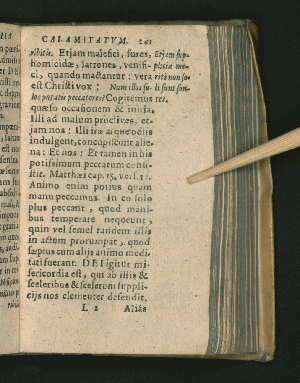 CALAMITATVM. 241
vibitis. Etjam malefici, fures,
homicidæ, latrones, venifi-
ci, quando mactantur: vera
est Christi vox: Num illos so-
los putatis peccatores? Cogitemus
quæso occasionem & initia.
Illi ad malum proclives, et-
jam nos: Illi iræ atque odijs
indulgent, concupiscunt alie-
na: Et nos: Et tamen in his
potissimum peccatum consi-
stit. Matthæi cap. 15. vers. 17.
Animo enim potius quam
manu peccamus. In eo solo
plus peccant, quod mani-
bus temperare nequeunt,
quin vel semel tandem illis
in actum prorumpat, quod
sæpius cum alijs animo medi-
tati fuerant. DEI igitur mi-
sericordia est, qui ab illis &
sceleribus & scelerum suppli-
cijs nos clementer defendit.
L 2 Alias
Etjam sup-
plicia me-
riti non so-
li sunt son-
tes.